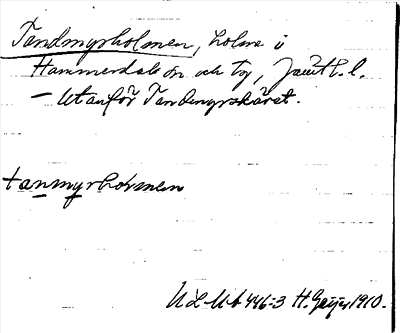 Tandmyrholmen, holme i
Hammerdals sn och tg, Jämtl. l.
— Utanför Tandmyrskäret.
tanmyrholmen
ULMA 446:3 H. Geijer 1910.